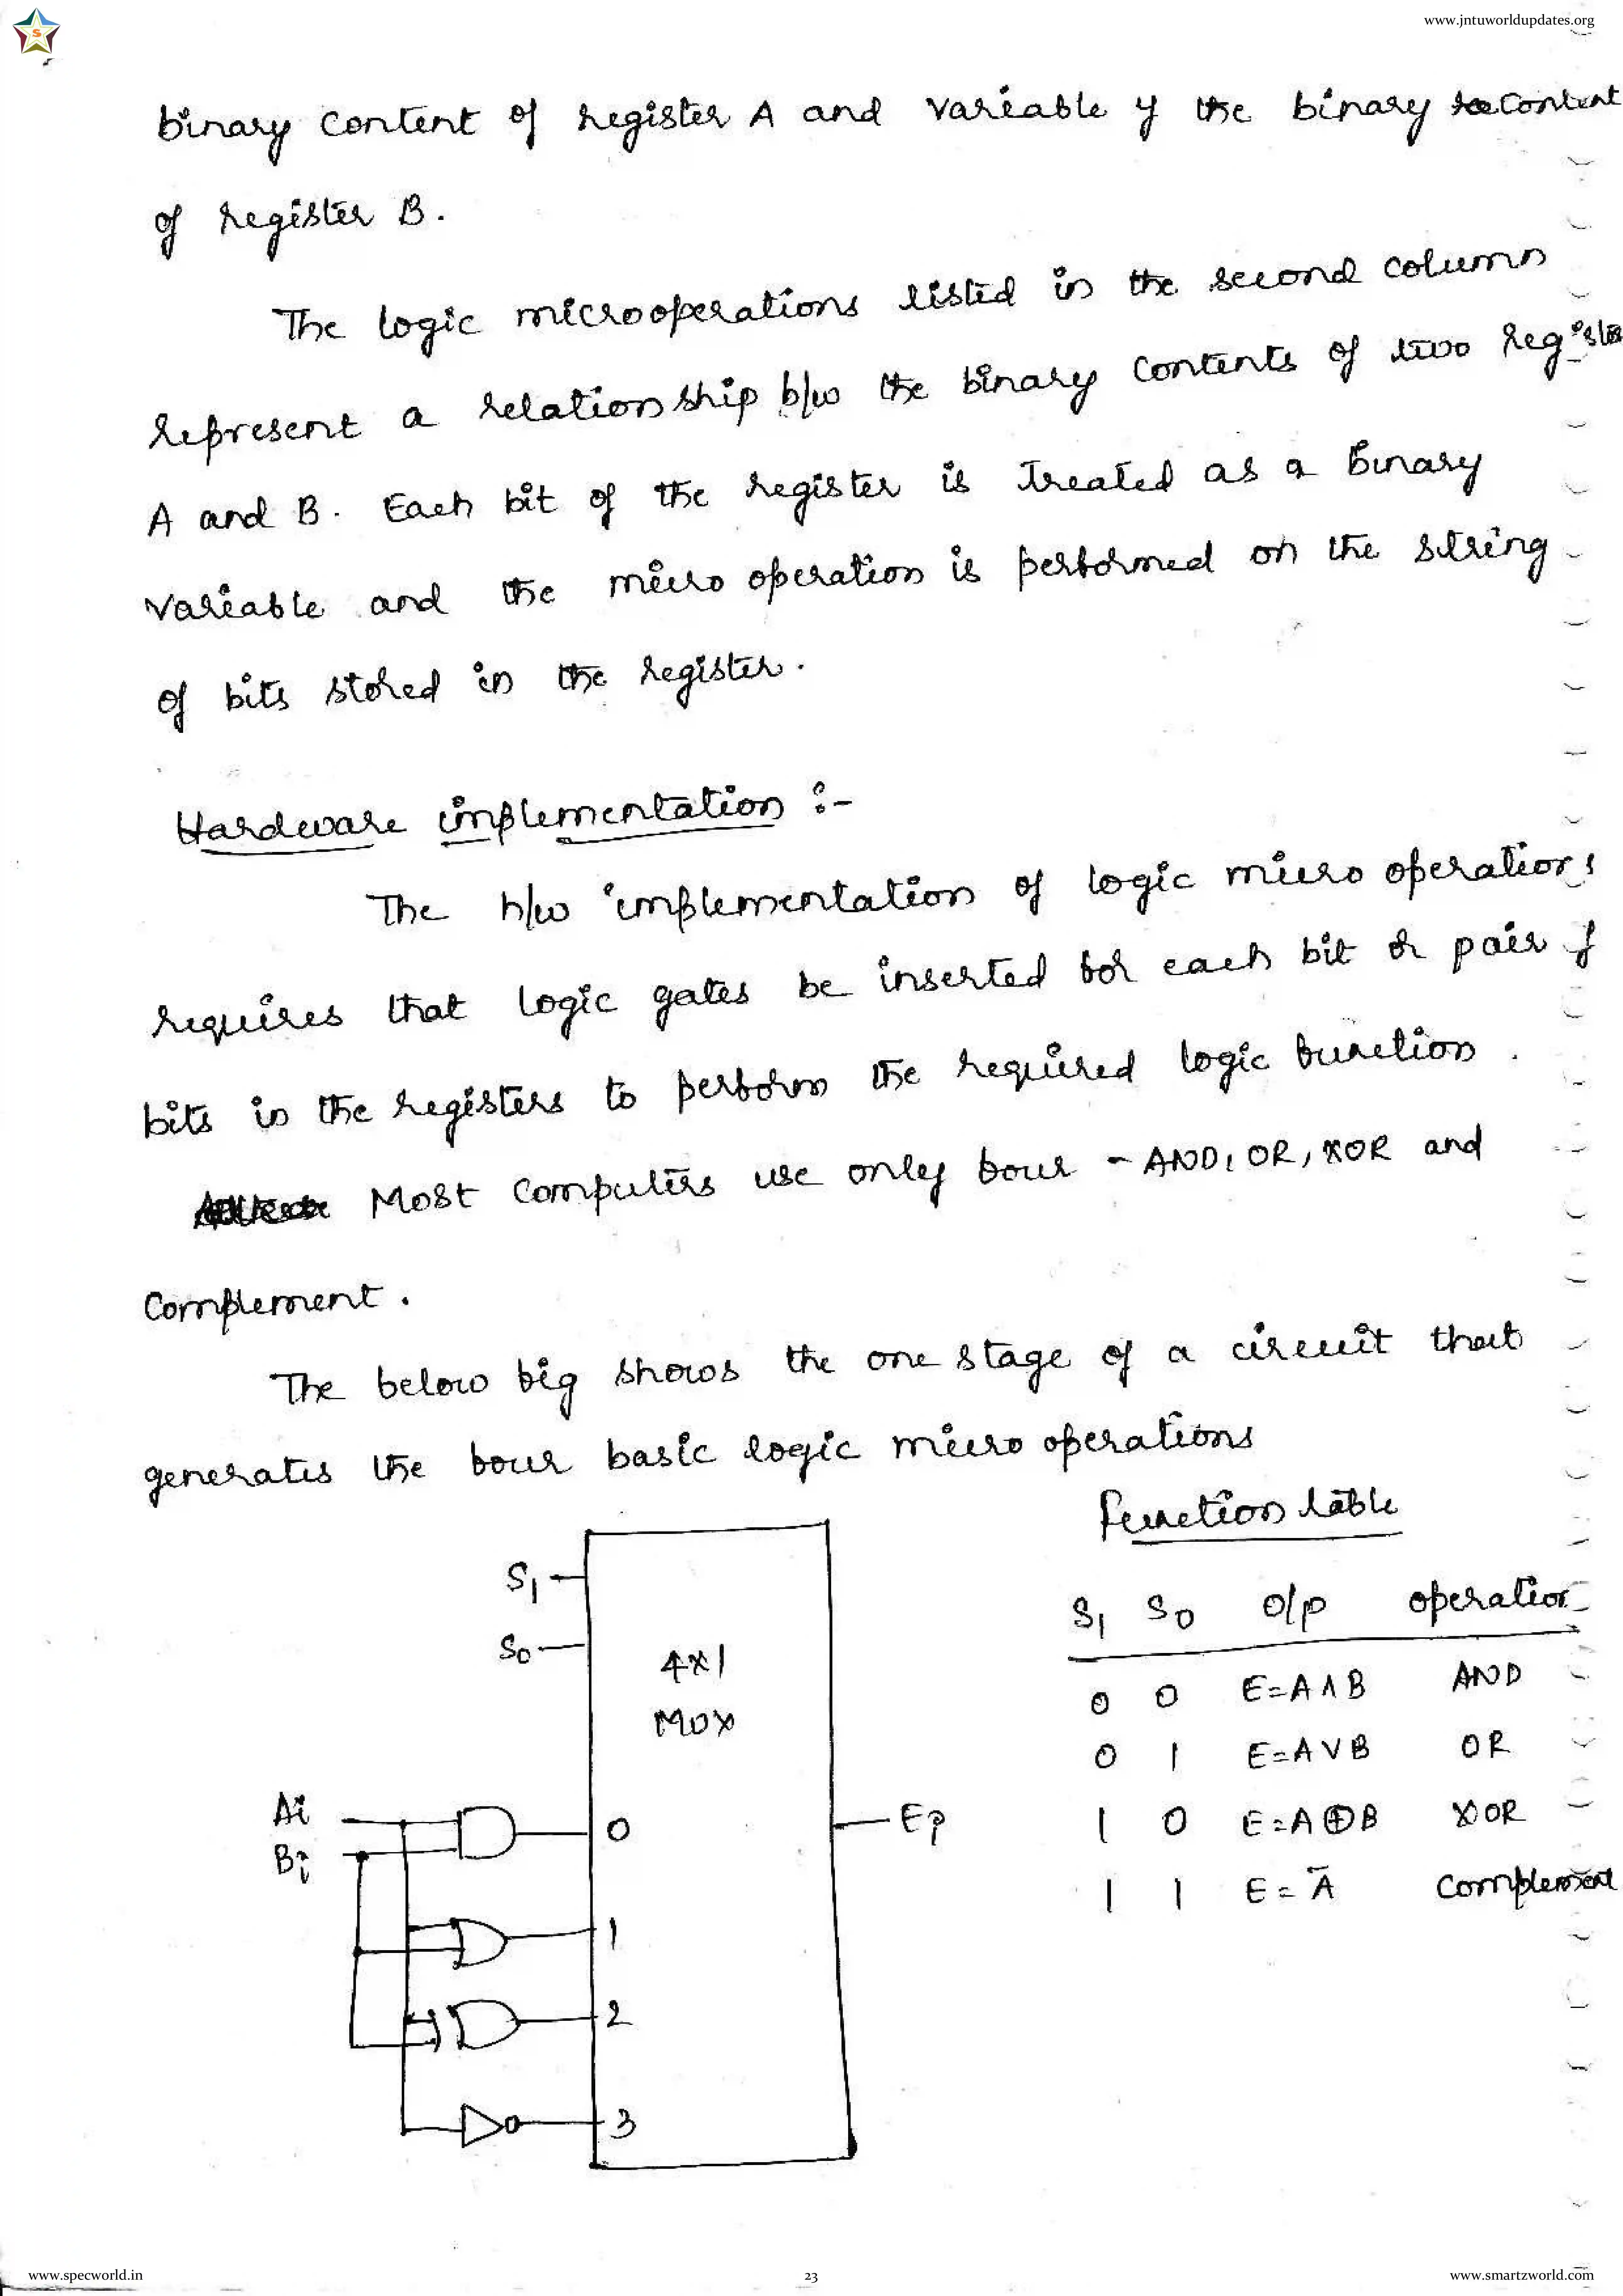 S
www.jntuworldupdates.org
binary content of register A and variable y the binary content
of register B.
The logic microoperations listed in the second column
represent a relationship b/w the binary contents of two
A and B. Each bit of the register is treated as a binary
variable and the micro operation is performed on the string
of bits stored in the register.
Hardware implementation :-
The h/w implementation of logic micro operations
requires that logic gates be inserted for each bit or pair of
bits in the registers to perform the required logic function.
Most computers use only four - AND, OR, XOR and
complement.
The below fig shows the one stage of a circuit that
generates the four basic logic micro operations
Function table
S1
S0
4x1
MUX
S1 S0 o/p operation
0 0 E=A∧B AND
0 1 E=A∨B OR
1 0 E=A⊕B XOR
1 1 E=Ā Complement
Ai
Bi
0
Ei
1
2
3
www.specworld.in
23
www.smartzworld.com